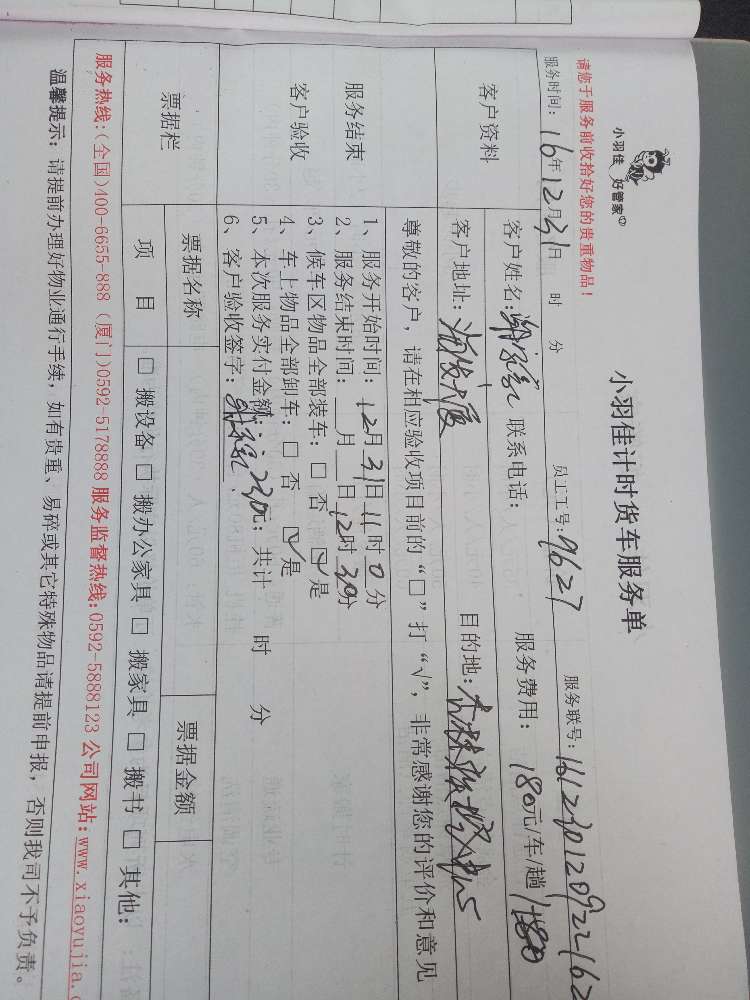 小羽佳 好管家
小羽佳计时货车服务单
请您于服务前收拾好您的贵重物品！
服务时间：16年12月31日 时 分 员工工号：9627 服务联号：161230120922162
客户资料
客户姓名： 联系电话： 服务费用：180元/车/趟
客户地址：海发大厦 目的地：
尊敬的客户，请在相应验收项目前的“□”打“√”，非常感谢您的评价和意见
服务结束
客户验收
1、服务开始时间：12月31日11时0分
2、服务结束时间： 月 日12时30分
3、候车区物品全部装车：□ 否 ☑ 是
4、车上物品全部卸车：□ 否 ☑ 是
5、本次服务实付金额：230元；共计 时 分
6、客户验收签字：
票据栏
票据名称 票据金额
项 目 □ 搬设备 □ 搬办公家具 □ 搬家具 □ 搬书 □ 其他：
服务热线：(全国)400-6655-888 (厦门)0592-5178888 服务监督热线：0592-5888123 公司网站：www.xiaoyujia.c
温馨提示：请提前办理好物业通行手续，如有贵重、易碎或其它特殊物品请提前申报，否则我司不予负责。